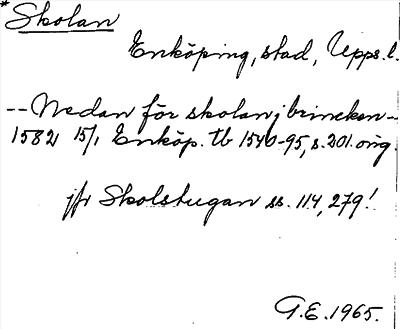 * Skolan
Enköping, stad, Upps. l.
-- Nedan för skolan j brincken --
1582 15/1 Enköp. tb 1540-95, s. 201. orig.
jfr Skolstugan ss. 114, 279!
G.E. 1965.